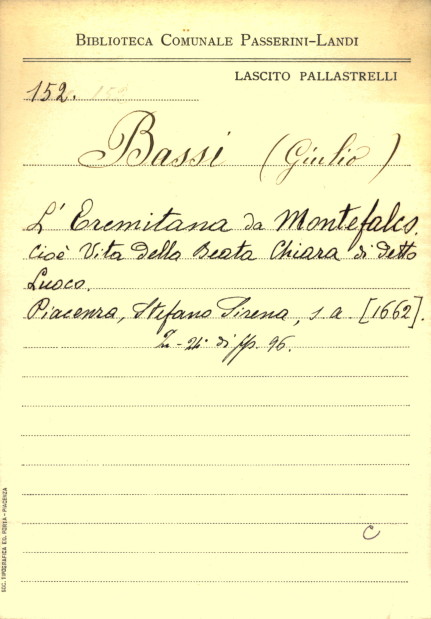 BIBLIOTECA COMUNALE PASSERINI-LANDI
LASCITO PALLASTRELLI
152.
Bassi (Giulio)
L' Eremitana da Montefalco.
Cioè Vita della Beata Chiara di detto
Luoco.
Piacenza, Stefano Sirena, s. a. [1662].
in-24° di pp. 96.
C
SOC. TIPOGRAFICA ED. PORTA - PIACENZA